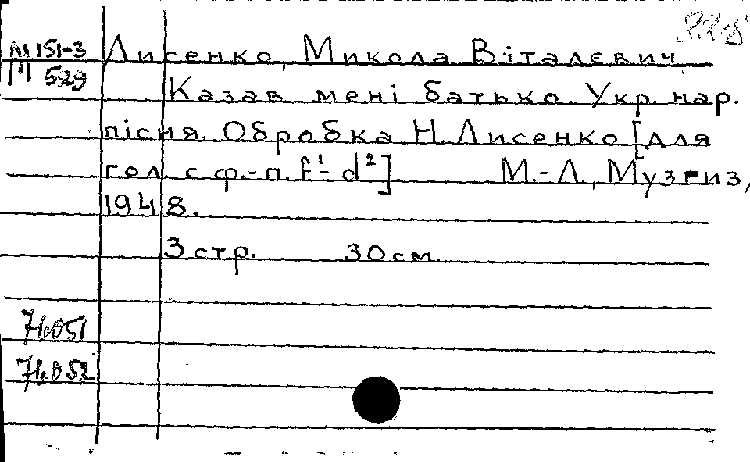 М 151-3 Лисенко, Микола Віталєвич
П 529
Казав мені батько. Укр. нар.
пісня. Обробка Н. Лисенко [для
гол. с ф.-п. f¹- d²] М.-Л., Музгиз,
1948.
3 стр. 30 см.
71.051
71.052